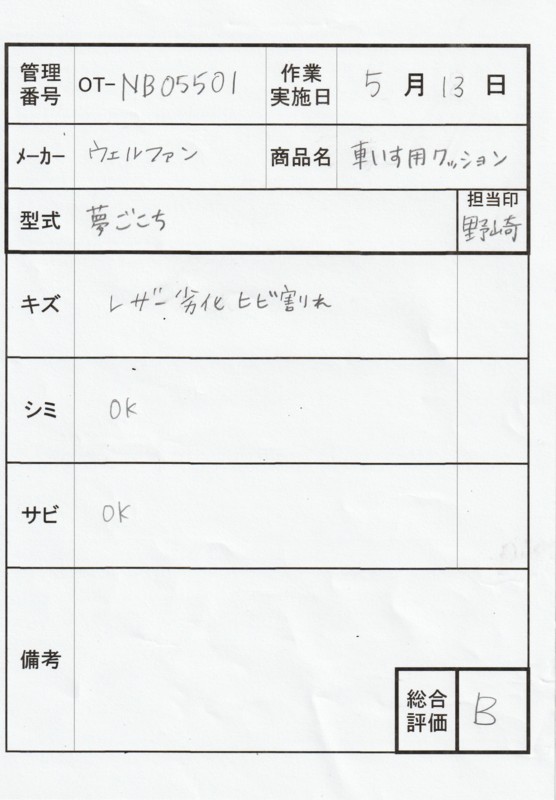 管理番号 OT-NB05501 作業実施日 5月13日
メーカー ウェルファン 商品名 車いす用クッション
型式 夢ごこち 担当印 野崎
キズ レザー劣化ヒビ割れ
シミ OK
サビ OK
備考
総合評価 B